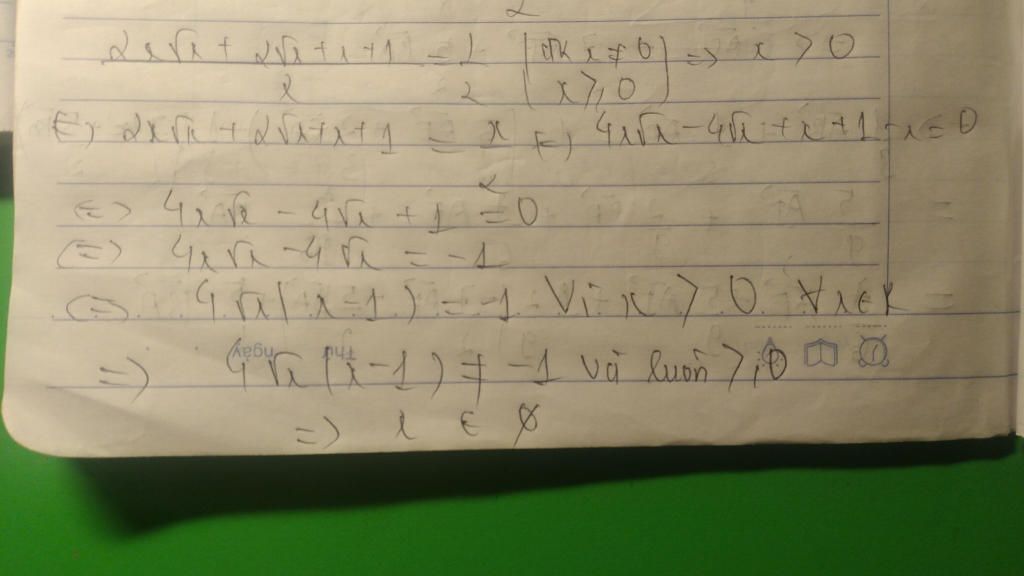 2
2x√x + 2√x + x + 1 / x = 1/2 [đk x ≠ 0 x ≥ 0] => x > 0
<=> 2x√x + 2√x + x + 1 = x/2 <=> 4x√x - 4√x + x + 1 - x = 0
<=> 4x√x - 4√x + 1 = 0
<=> 4x√x - 4√x = -1
<=> 4√x (x - 1) = -1 Vì x > 0 ∀x ∈ R
Thứ ngày
=> 4√x (x - 1) ≠ -1 và luôn ≥ 0
=> x ∈ ∅